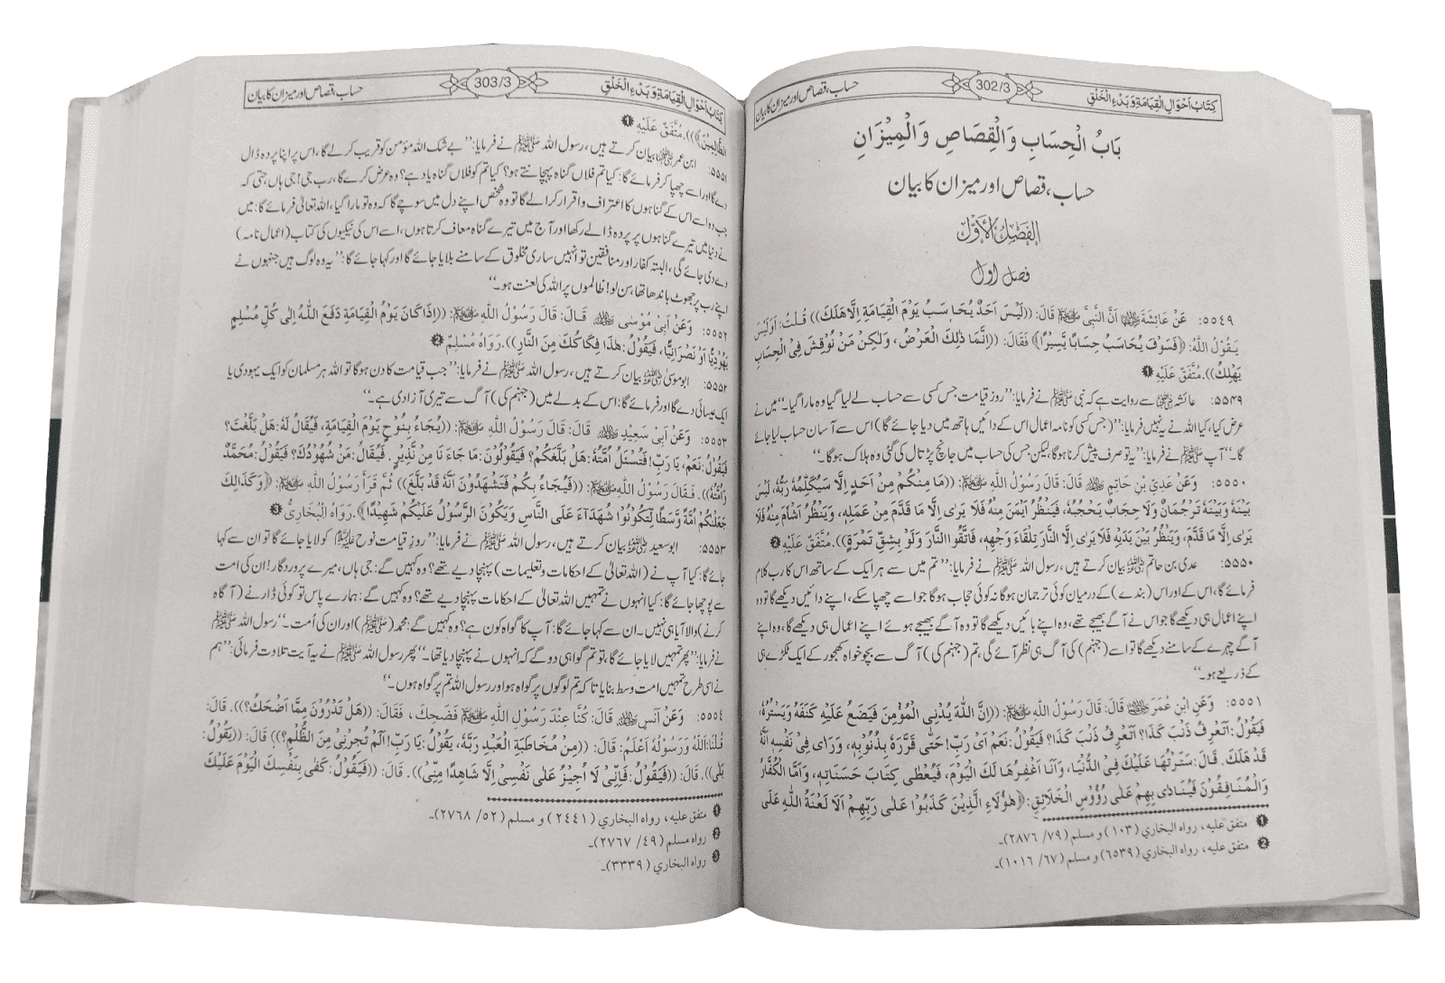 كِتَابُ اَحْوَالِ الْقِيَامَةِ وَبَدْءِ الْخَلْقِ 302/3 حساب، قصاص اور میزان کا بیان
بَابُ الْحِسَابِ وَالْقِصَاصِ وَالْمِيْزَانِ
حساب، قصاص اور میزان کا بیان
الفَصْلُ الْأَوَّلُ
فصل اول
٥٥٤٩: عَنْ عَائِشَةَ ؓ اَنَّ النَّبِيَّ ﷺ قَالَ: ((لَيْسَ اَحَدٌ يُحَاسَبُ يَوْمَ الْقِيَامَةِ اِلَّا هَلَكَ)) قُلْتُ: اَوَلَيْسَ
يَقُوْلُ اللّٰهُ: ﴿فَسَوْفَ يُحَاسَبُ حِسَابًا يَّسِيْرًا﴾ فَقَالَ: ((اِنَّمَا ذٰلِكَ الْعَرْضُ، وَلٰكِنْ مَنْ نُوْقِشَ فِي الْحِسَابِ
يَهْلِكُ)). مُتَّفَقٌ عَلَيْهِ ❶
۵۵۴۹: عائشہ ؓ سے روایت ہے کہ نبی ﷺ نے فرمایا: ’’روز قیامت جس کسی سے حساب لے لیا گیا وہ مارا گیا۔‘‘ میں نے
عرض کیا، کیا اللہ نے یہ نہیں فرمایا: ’’(جس کسی کو نامہ اعمال اس کے دائیں ہاتھ میں دیا جائے گا) اس سے آسان حساب لیا جائے
گا۔‘‘ آپ ﷺ نے فرمایا: ’’یہ تو صرف پیش کرنا ہوگا، لیکن جس کی حساب میں جانچ پڑتال کی گئی وہ ہلاک ہو گا۔‘‘
٥٥٥٠: وَعَنْ عَدِيِّ بْنِ حَاتِمٍ ؓ قَالَ: قَالَ رَسُوْلُ اللّٰهِ ﷺ: ((مَا مِنْكُمْ مِنْ اَحَدٍ اِلَّا سَيُكَلِّمُهُ رَبُّهُ، لَيْسَ
بَيْنَهُ وَبَيْنَهُ تَرْجُمَانٌ وَلَا حِجَابٌ يَحْجُبُهُ، فَيَنْظُرُ اَيْمَنَ مِنْهُ فَلَا يَرٰى اِلَّا مَا قَدَّمَ مِنْ عَمَلِهِ، وَيَنْظُرُ اَشْاَمَ مِنْهُ فَلَا
يَرٰى اِلَّا مَا قَدَّمَ، وَيَنْظُرُ بَيْنَ يَدَيْهِ فَلَا يَرٰى اِلَّا النَّارَ تِلْقَاءَ وَجْهِهِ، فَاتَّقُوا النَّارَ وَلَوْ بِشِقِّ تَمْرَةٍ)). مُتَّفَقٌ عَلَيْهِ ❷
۵۵۵۰: عدی بن حاتم ؓ بیان کرتے ہیں، رسول اللہ ﷺ نے فرمایا: ’’تم میں سے ہر ایک کے ساتھ اس کا رب کلام
فرمائے گا، اس کے اور اس (بندے) کے درمیان کوئی ترجمان ہوگا نہ کوئی حجاب ہوگا جو اسے چھپا سکے، اپنے دائیں دیکھے گا تو وہ
اپنے اعمال ہی دیکھے گا جو اس نے آگے بھیجے تھے، وہ اپنے بائیں دیکھے گا تو وہ آگے بھیجے ہوئے اپنے اعمال ہی دیکھے گا، وہ اپنے
آگے چہرے کے سامنے دیکھے گا تو اسے (جہنم) کی آگ ہی نظر آئے گی، تم (جہنم کی) آگ سے بچو خواہ کھجور کے ایک ٹکڑے ہی
کے ذریعے ہو۔‘‘
٥٥٥١: وَعَنِ ابْنِ عُمَرَ ؓ قَالَ: قَالَ رَسُوْلُ اللّٰهِ ﷺ: ((اِنَّ اللّٰهَ يُدْنِي الْمُؤْمِنَ فَيَضَعُ عَلَيْهِ كَنَفَهُ وَيَسْتُرُهُ،
فَيَقُوْلُ: اَتَعْرِفُ ذَنْبَ كَذَا؟ اَتَعْرِفُ ذَنْبَ كَذَا؟ فَيَقُوْلُ: نَعَمْ اَيْ رَبِّ! حَتّٰى قَرَّرَهُ بِذُنُوْبِهٖ، وَرَاٰى فِيْ نَفْسِهٖ اَنَّهُ
قَدْ هَلَكَ. قَالَ: سَتَرْتُهَا عَلَيْكَ فِي الدُّنْيَا، وَاَنَا اَغْفِرُهَا لَكَ الْيَوْمَ، فَيُعْطٰى كِتَابَ حَسَنَاتِهٖ، وَاَمَّا الْكُفَّارُ
وَالْمُنَافِقُوْنَ فَيُنَادٰى بِهِمْ عَلٰى رُؤُوْسِ الْخَلَائِقِ: ﴿هٰؤُلَاءِ الَّذِيْنَ كَذَبُوْا عَلٰى رَبِّهِمْ اَلَا لَعْنَةُ اللّٰهِ عَلَى
❶ متفق عليه، رواه البخاري (١٠٣) و مسلم (٧٩/ ٢٨٧٦)۔
❷ متفق عليه، رواه البخاري (٦٥٣٩) و مسلم (٦٧/ ١٠١٦)۔
كِتَابُ اَحْوَالِ الْقِيَامَةِ وَبَدْءِ الْخَلْقِ 303/3 حساب، قصاص اور میزان کا بیان
الظَّالِمِيْنَ﴾)). مُتَّفَقٌ عَلَيْهِ ❶
۵۵۵۱: ابن عمر ؓ بیان کرتے ہیں، رسول اللہ ﷺ نے فرمایا: ’’بے شک اللہ مؤمن کو قریب کر لے گا، اس پر اپنا پردہ ڈال
دے گا اور اسے چھپا کر فرمائے گا: کیا تم فلاں گناہ پہچانتے ہو؟ کیا تم کو فلاں گناہ یاد ہے؟ وہ عرض کرے گا، رب جی! جی ہاں، حتی کہ
جب وہ اسے اس کے گناہوں کا اعتراف و اقرار کرا لے گا تو وہ شخص اپنے دل میں سوچے گا کہ وہ تو مارا گیا، اللہ تعالی فرمائے گا: میں
نے دنیا میں تیرے گناہوں پر پردہ ڈالے رکھا اور آج میں تیرے گناہ معاف کرتا ہوں، اسے اس کی نیکیوں کی کتاب (اعمال نامہ)
دے دی جائے گی، البتہ کفار اور منافقین تو انہیں ساری مخلوق کے سامنے بلایا جائے گا اور کہا جائے گا: ’’یہ وہ لوگ ہیں جنہوں نے
اپنے رب پر جھوٹ باندھا تھا، سن لو! ظالموں پر اللہ کی لعنت ہو۔‘‘
٥٥٥٢: وَعَنْ اَبِيْ مُوْسٰى ؓ قَالَ: قَالَ رَسُوْلُ اللّٰهِ ﷺ: ((اِذَا كَانَ يَوْمُ الْقِيَامَةِ دَفَعَ اللّٰهُ اِلٰى كُلِّ مُسْلِمٍ
يَهُوْدِيًّا اَوْ نَصْرَانِيًّا، فَيَقُوْلُ: هٰذَا فِكَاكُكَ مِنَ النَّارِ)). رَوَاهُ مُسْلِمٌ ❷
۵۵۵۲: ابو موسیٰ ؓ بیان کرتے ہیں، رسول اللہ ﷺ نے فرمایا: ’’جب قیامت کا دن ہوگا تو اللہ ہر مسلمان کو ایک یہودی یا
ایک عیسائی دے گا اور فرمائے گا: اس کے بدلے میں (جہنم کی) آگ سے تیری آزادی ہے۔‘‘
٥٥٥٣: وَعَنْ اَبِيْ سَعِيْدٍ ؓ قَالَ: قَالَ رَسُوْلُ اللّٰهِ ﷺ: ((يُجَاءُ بِنُوْحٍ يَوْمَ الْقِيَامَةِ، فَيُقَالُ لَهُ: هَلْ بَلَّغْتَ؟
فَيَقُوْلُ: نَعَمْ، يَا رَبِّ! فَتُسْئَلُ اُمَّتُهُ: هَلْ بَلَّغَكُمْ؟ فَيَقُوْلُوْنَ: مَا جَاءَ نَا مِنْ نَّذِيْرٍ. فَيُقَالُ: مَنْ شُهُوْدُكَ؟ فَيَقُوْلُ: مُحَمَّدٌ
وَاُمَّتُهُ)). فَقَالَ رَسُوْلُ اللّٰهِ ﷺ: ((فَيُجَاءُ بِكُمْ فَتَشْهَدُوْنَ اَنَّهُ قَدْ بَلَّغَ)) ثُمَّ قَرَأَ رَسُوْلُ اللّٰهِ ﷺ: ﴿وَكَذَالِكَ
جَعَلْنٰكُمْ اُمَّةً وَّسَطًا لِّتَكُوْنُوْا شُهَدَآءَ عَلَى النَّاسِ وَيَكُوْنَ الرَّسُوْلُ عَلَيْكُمْ شَهِيْدًا﴾. رَوَاهُ الْبُخَارِيُّ ❸
۵۵۵۳: ابو سعید ؓ بیان کرتے ہیں، رسول اللہ ﷺ نے فرمایا: ’’روزِ قیامت نوح علیہ السلام کو لایا جائے گا تو ان سے کہا
جائے گا: کیا آپ نے (اللہ تعالیٰ کے احکامات و تعلیمات) پہنچا دیے تھے؟ وہ کہیں گے: جی ہاں، میرے پروردگار! ان کی امت
سے پوچھا جائے گا: کیا انہوں نے تمہیں اللہ تعالیٰ کے احکامات پہنچا دیے تھے؟ وہ کہیں گے: ہمارے پاس تو کوئی ڈرانے (آگاہ
کرنے) والا آیا ہی نہیں۔ ان سے کہا جائے گا: آپ کا گواہ کون ہے؟ وہ کہیں گے: محمد (ﷺ) اور ان کی اُمت۔‘‘ رسول اللہ ﷺ
نے فرمایا: ’’پھر تمہیں لایا جائے گا، تو تم گواہی دو گے کہ انہوں نے پہنچا دیا تھا۔‘‘ پھر رسول اللہ ﷺ نے یہ آیت تلاوت فرمائی: ’’ہم
نے اسی طرح تمہیں امت وسط بنایا تا کہ تم لوگوں پر گواہ ہو اور رسول اللہ تم پر گواہ ہوں۔‘‘
٥٥٥٤: وَعَنْ اَنَسٍ ؓ قَالَ: كُنَّا عِنْدَ رَسُوْلِ اللّٰهِ ﷺ فَضَحِكَ، فَقَالَ: ((هَلْ تَدْرُوْنَ مِمَّا اَضْحَكُ؟)). قَالَ:
قُلْنَا: اَللّٰهُ وَرَسُوْلُهُ اَعْلَمُ: قَالَ: ((مِنْ مُخَاطَبَةِ الْعَبْدِ رَبَّهُ، يَقُوْلُ: يَا رَبِّ! اَلَمْ تُجِرْنِيْ مِنَ الظُّلْمِ؟)) قَالَ: ((يَقُوْلُ:
بَلٰى)). قَالَ: ((فَيَقُوْلُ: فَاِنِّيْ لَا اُجِيْزُ عَلٰى نَفْسِيْ اِلَّا شَاهِدًا مِنِّيْ)). قَالَ: ((فَيَقُوْلُ: كَفٰى بِنَفْسِكَ الْيَوْمَ عَلَيْكَ
❶ متفق عليه، رواه البخاري (٢٤٤١) و مسلم (٥٢/ ٢٧٦٨)۔
❷ رواه مسلم (٤٩/ ٢٧٦٧)۔
❸ رواه البخاري (٣٣٣٩)۔